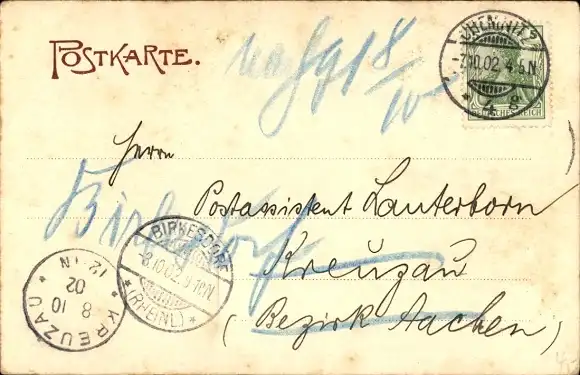 POSTKARTE.
CHEMNITZ
-7.10.02. 4-5 N
* 4 *
DEUTSCHES REICH
8/10
Herrn
Postassistent Lauterborn
Birkesdorf
Kreuzau
(Bezirk Aachen)
BIRKESDORF
-8.10.02.
*(RHEINL)*
KREUZAU
8 10
02
12-1N